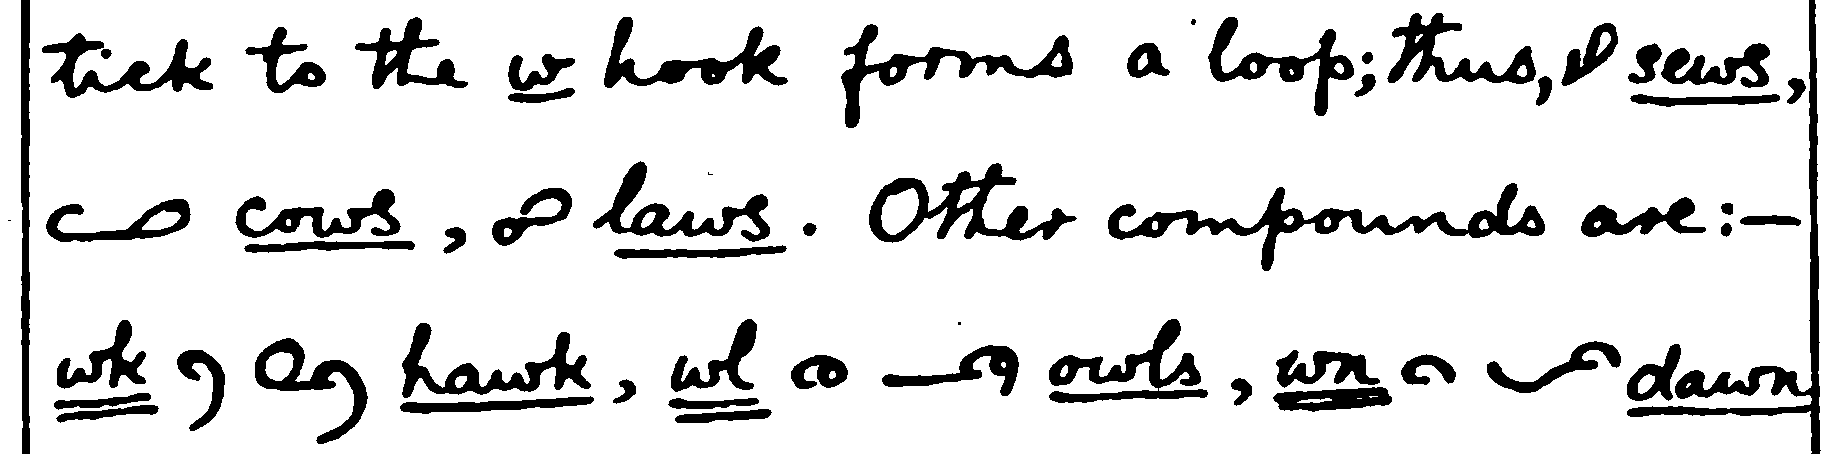 tick to the w hook forms a loop; thus, sews,
cows, laws. Other compounds are:—
wk hawk, wl owls, wn dawn